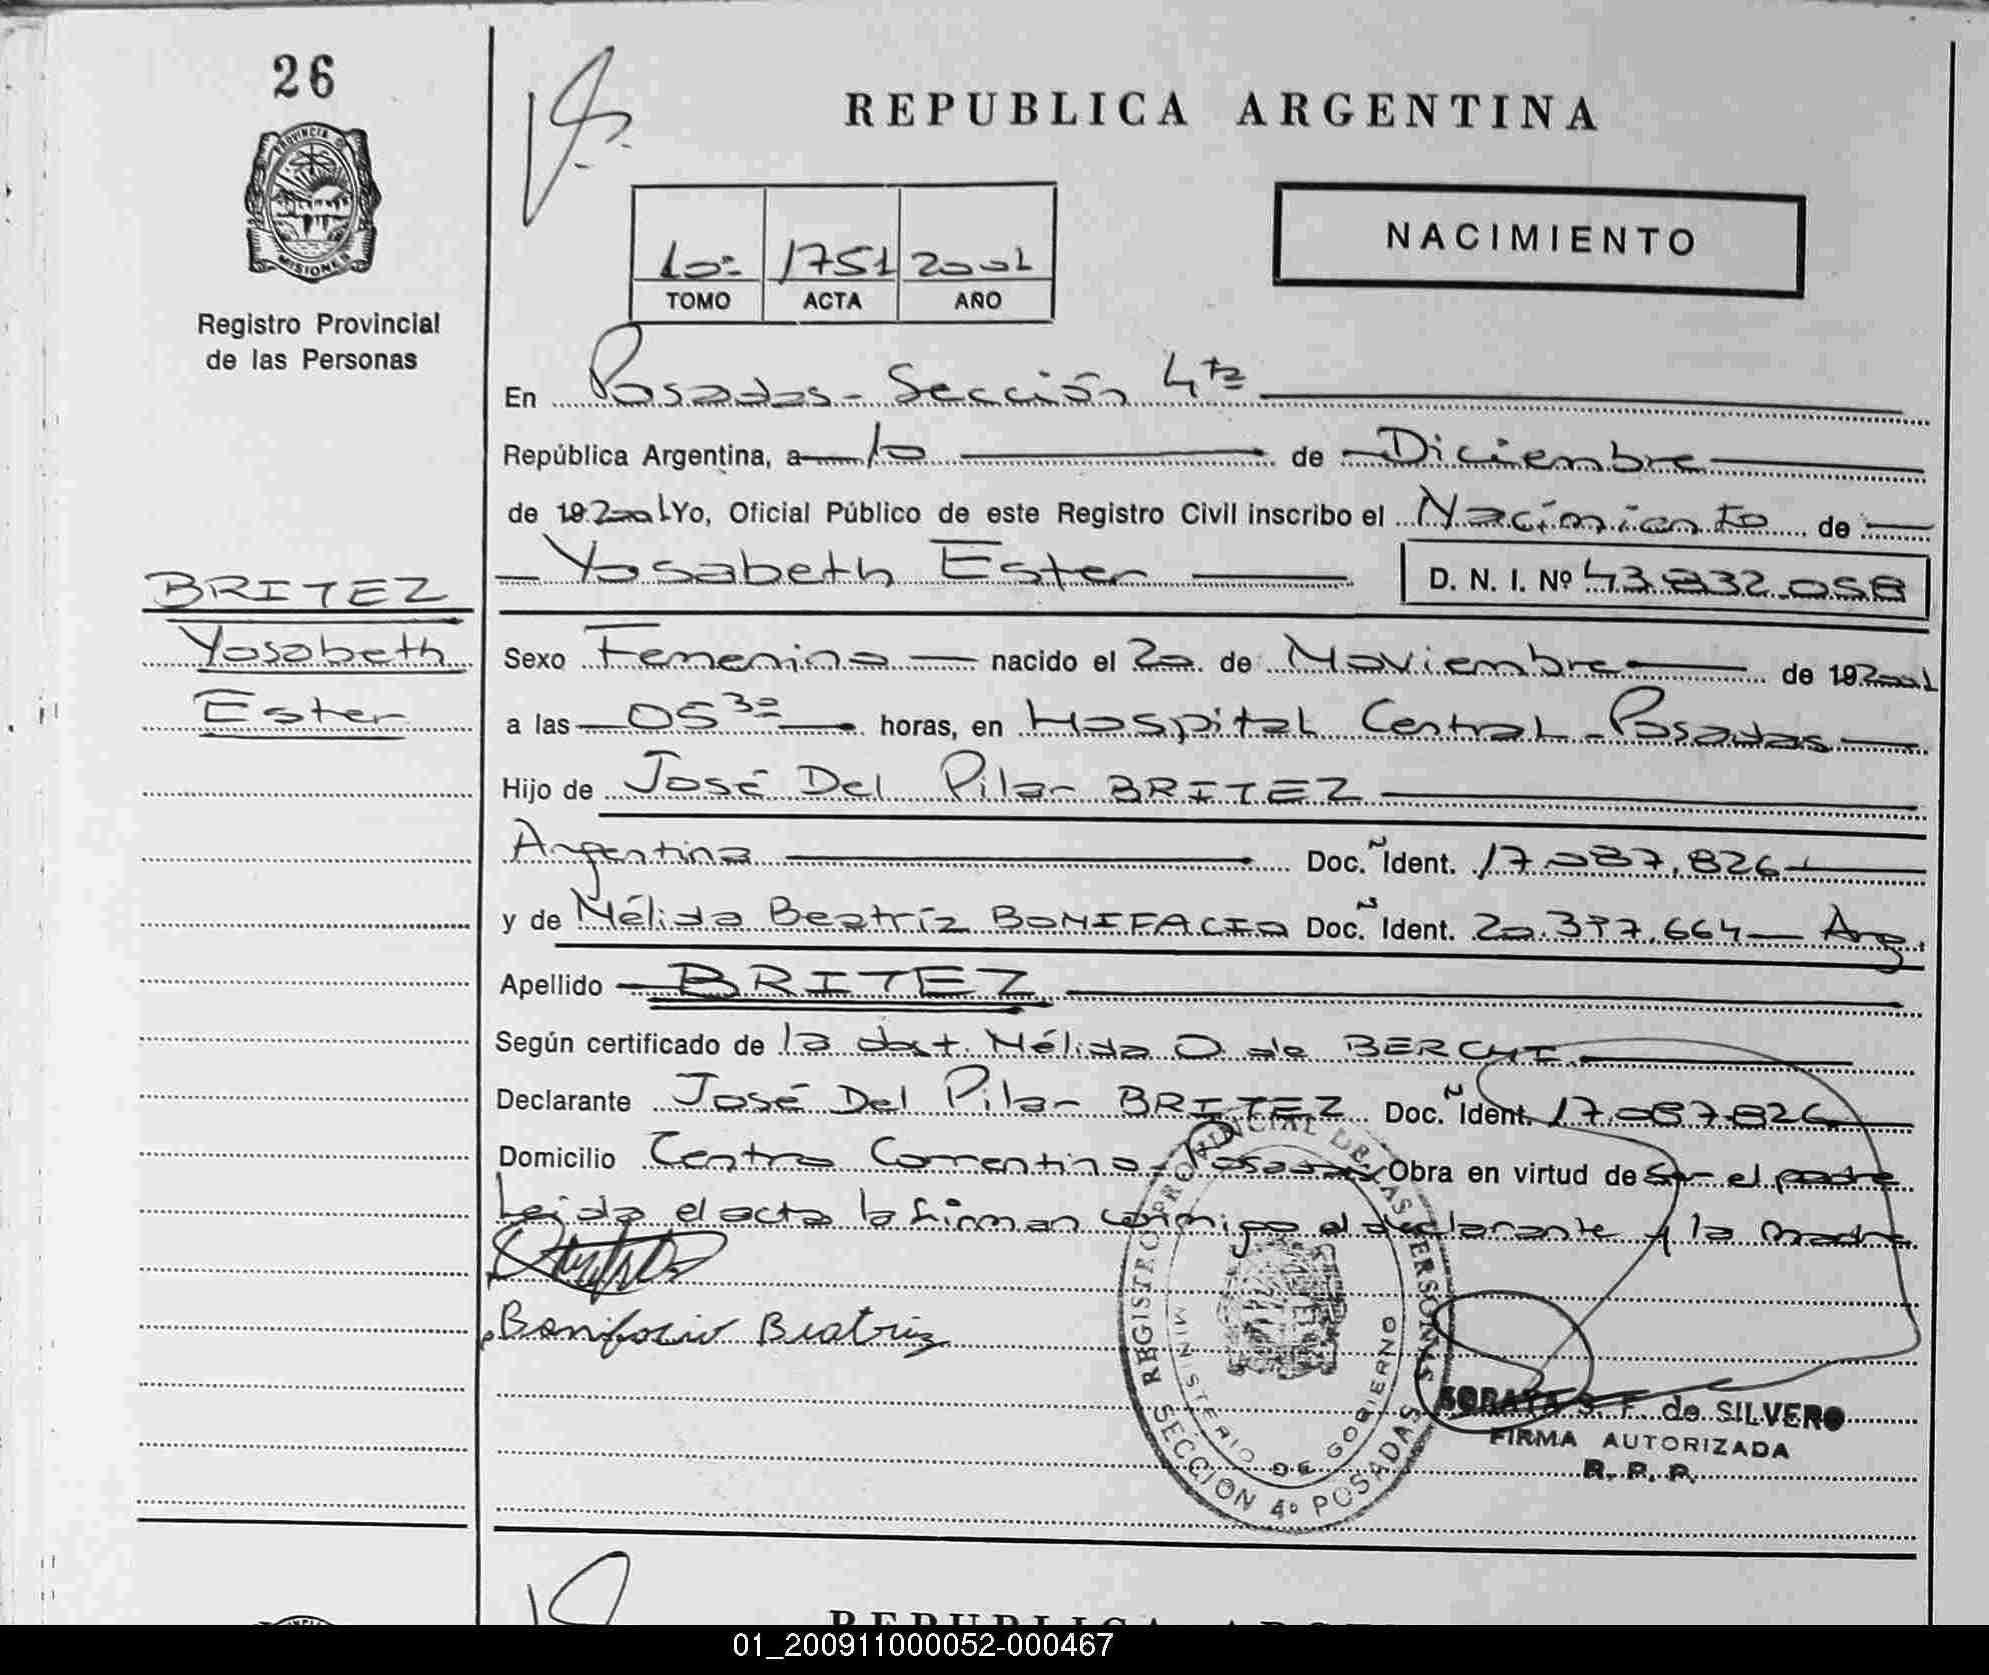 26
PROVINCIA DE
MISIONES
Registro Provincial
de las Personas
REPUBLICA ARGENTINA
NACIMIENTO
10º 1751 2001
TOMO ACTA AÑO
En Posadas - Sección 4ta
República Argentina, a 10 de Diciembre
de 19 2001 Yo, Oficial Público de este Registro Civil inscribo el Nacimiento de
Yosabeth Ester D. N. I. Nº 43.832.058
BRITEZ
Yosabeth
Ester
Sexo Femenino nacido el 20 de Noviembre de 19 2001
a las 05 30 horas, en Hospital Central - Posadas
Hijo de José Del Pilar BRITEZ
Argentina Doc. Ident. 17.087.826
y de Nélida Beatríz BONIFACIO Doc. Ident. 20.397.664 Arg.
Apellido BRITEZ
Según certificado de la obst. Nélida O. de
Declarante José Del Pilar BRITEZ Doc. Ident. 17.087.826
Domicilio Centro Correntino - Posadas Obra en virtud de ser el padre
Leida el acta la firman conmigo el declarante y la madre
Bonifacio Beatriz
REGISTRO PROVINCIAL DE LAS PERSONAS
MINISTERIO DE GOBIERNO
SECCION 4º POSADAS
S. F. de SILVERO
FIRMA AUTORIZADA
R. P. P.
REPUBLICA
01_200911000052-000467